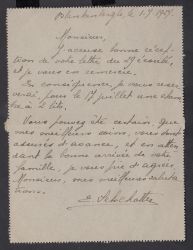 le 1-7-1959.
Monsieur,
J'accuse bonne récep-
tion de votre lettre du 29 écoulé,
et je vous en remercie.
En conséquence, je vous reser-
verai pour le 17 juillet une cham-
bre à 2 lits.
Vous pouvez être certain, que
mes meilleurs soins, vous sont
assurés d'avance, et en atten-
dant la bonne arrivée de votre
famille, je vous prie d'agréer,
Monsieur, mes meilleures saluta-
tions.